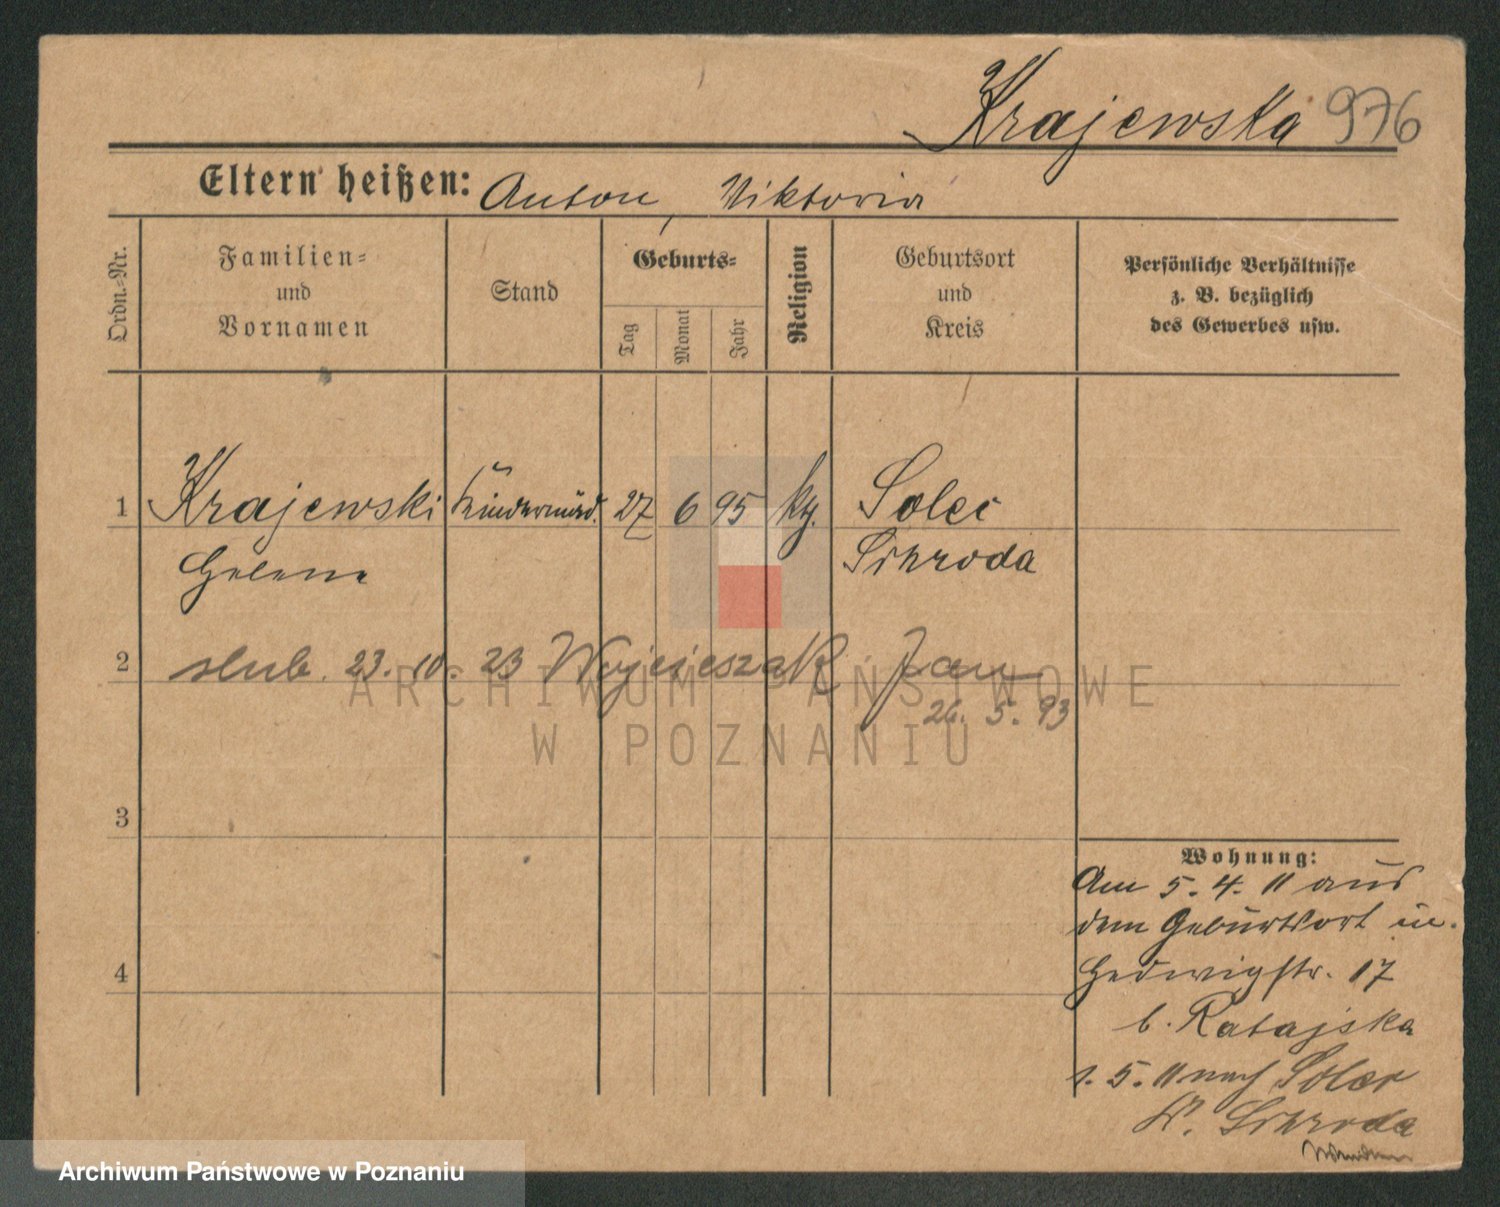 Krajewska 976
Eltern heißen: Anton, Viktoria
Ordn.=Nr.
Familien=
und
Vornamen
Stand
Geburts=
Tag
Monat
Jahr
Religion
Geburtsort
und
Kreis
Persönliche Verhältnisse
z. B. bezüglich
des Gewerbes usw.
1 Krajewski Kindermäd. 27 6 95 kg. Solec
Helena Schroda
2 slub. 23. 10. 23 Wojcieszak Jan
26. 5. 93
3
4
Wohnung:
Am 5. 4. 11 aus
dem Geburtsort in
Hedwigstr. 17
b. Ratajska
1. 5. 11 nach Solec
Kr. Schroda
ARCHIWUM PAŃSTWOWE
W POZNANIU
Archiwum Państwowe w Poznaniu